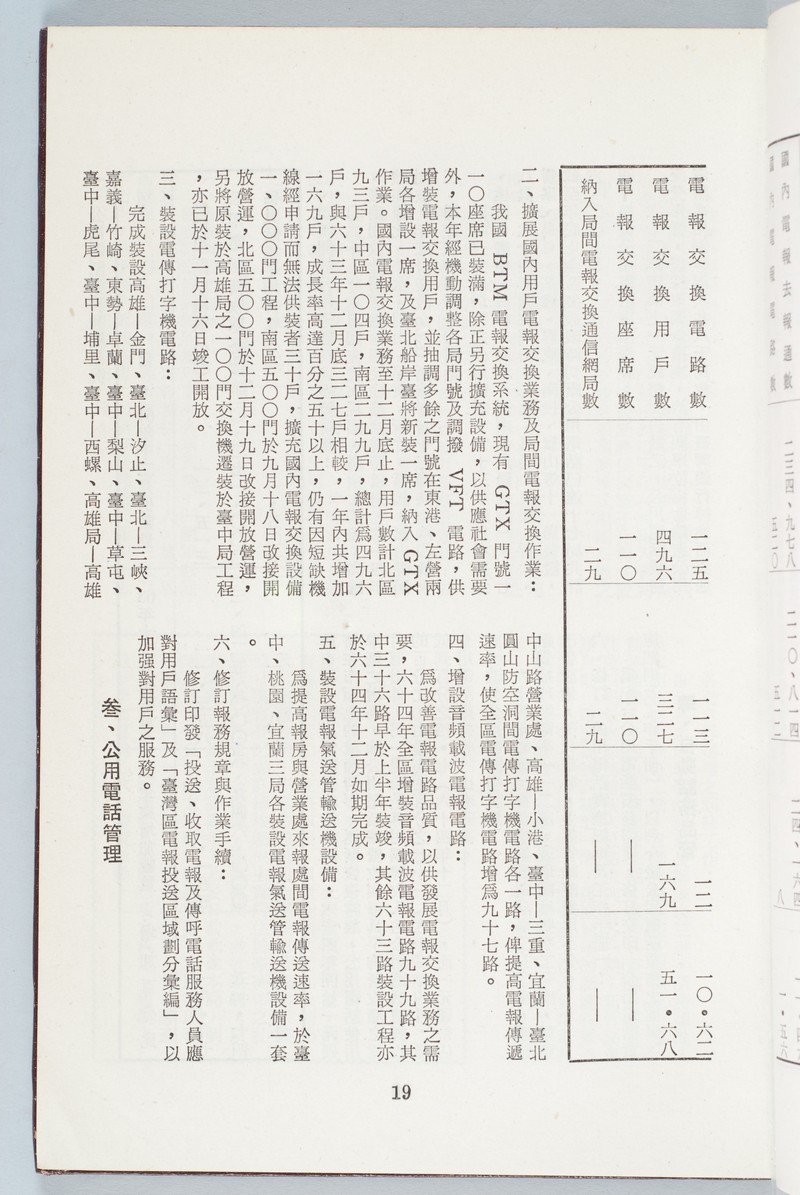 電報交換電路數　一二五　一一三　一二　一〇・六二
電報交換用戶數　四九六　三二七　一六九　五一・六八
電報交換座席數　一一〇　一一〇　—　—
納入局間電報交換通信網局數　二九　二九　—　—
二、擴展國內用戶電報交換業務及局間電報交換作業：
我國 BTM 電報交換系統，現有 GTX 門號一
一〇座席已裝滿，除正另行擴充設備，以供應社會需要
外，本年經機動調整各局門號及調撥 VFT 電路，供
增裝電報交換用戶，並抽調多餘之門號在東港、左營兩
局各增設一席，及臺北船岸臺將新裝一席，納入 GTX
作業。國內電報交換業務至十二月底止，用戶數計北區
九三戶，中區一〇四戶，南區二九九戶，總計爲四九六
戶，與六十三年十二月底三二七戶相較，一年內共增加
一六九戶，成長率高達百分之五十以上，仍有因短缺機
線經申請而無法供裝者三十戶，擴充國內電報交換設備
一、〇〇〇門工程，南區五〇〇門於九月十八日改接開
放營運，北區五〇〇門於十二月十九日改接開放營運，
另將原裝於高雄局之一〇〇門交換機遷裝於臺中局工程
，亦已於十一月十六日竣工開放。
三、裝設電傳打字機電路：
完成裝設高雄—金門、臺北—汐止、臺北—三峽、
嘉義—竹崎、東勢—卓蘭、臺中—梨山、臺中—草屯、
臺中—虎尾、臺中—埔里、臺中—西螺、高雄局—高雄
中山路營業處、高雄—小港、臺中—三重、宜蘭—臺北
圓山防空洞間電傳打字機電路各一路，俾提高電報傳遞
速率，使全區電傳打字機電路增爲九十七路。
四、增設音頻載波電報電路：
爲改善電報電路品質，以供發展電報交換業務之需
要，六十四年全區增裝音頻載波電報電路九十九路，其
中三十六路早於上半年裝竣，其餘六十三路裝設工程亦
於六十四年十二月如期完成。
五、裝設電報氣送管輸送機設備：
爲提高報房與營業處來報處間電報傳送速率，於臺
中、桃園、宜蘭三局各裝設電報氣送管輸送機設備一套
。
六、修訂報務規章與作業手續：
修訂印發「投送、收取電報及傳呼電話服務人員應
對用戶語彙」及「臺灣區電報投送區域劃分彙編」，以
加强對用戶之服務。
叁、公用電話管理
19